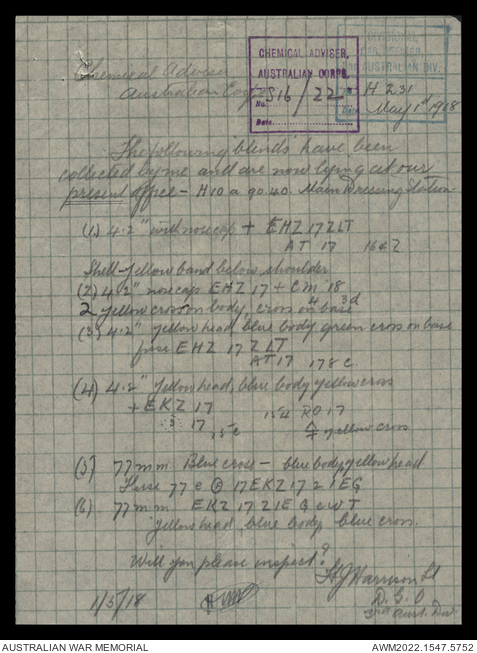 CHEMICAL ADVISER,
AUSTRALIAN CORPS.
No. S16/22
Date
DIVISIONAL
AUSTRALIAN DIV.
H 231
May 1st 1918
Chemical Adviser
Australian Corps
The following blends have been
collected by me and are now lying at our
present office – H10 a 90.40. Main Dressing Station
(1) 4.2" with nosecap + EHZ 17 Z LT
AT 17 16
Shell – yellow band below shoulder
(2) 4.2" nosecap EHZ 17 + CM 18
2 yellow cross on body, cross on base
(3) 4.2" yellow head, blue body green cross on base
fuse EHZ 17 Z LT
AT 17 178 c.
(4) 4.2" Yellow head, blue body yellow cross
+ EKZ 17 RO 17
17 15 c yellow cross
(5) 77mm Blue cross – blue body, yellow head
Fuse 77 17 EKZ 17 21EG
(6) 77mm EKZ 17 21EG WT
Yellow head, blue body blue cross.
Will you please inspect?
Harrison Lt
D.G.O
3rd Aust. Div.
1/5/18
AUSTRALIAN WAR MEMORIAL
AWM2022.1547.5752